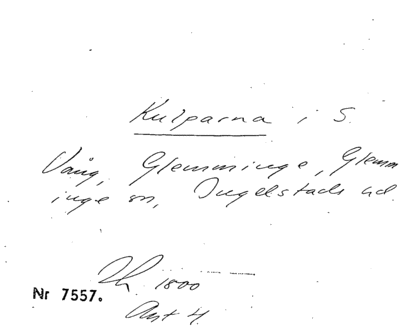 Kulparna i S.
Vång, Glemminge, Glemm
inge sn, Ingelstads hd.
1800
Nr 7557.
Avst 4